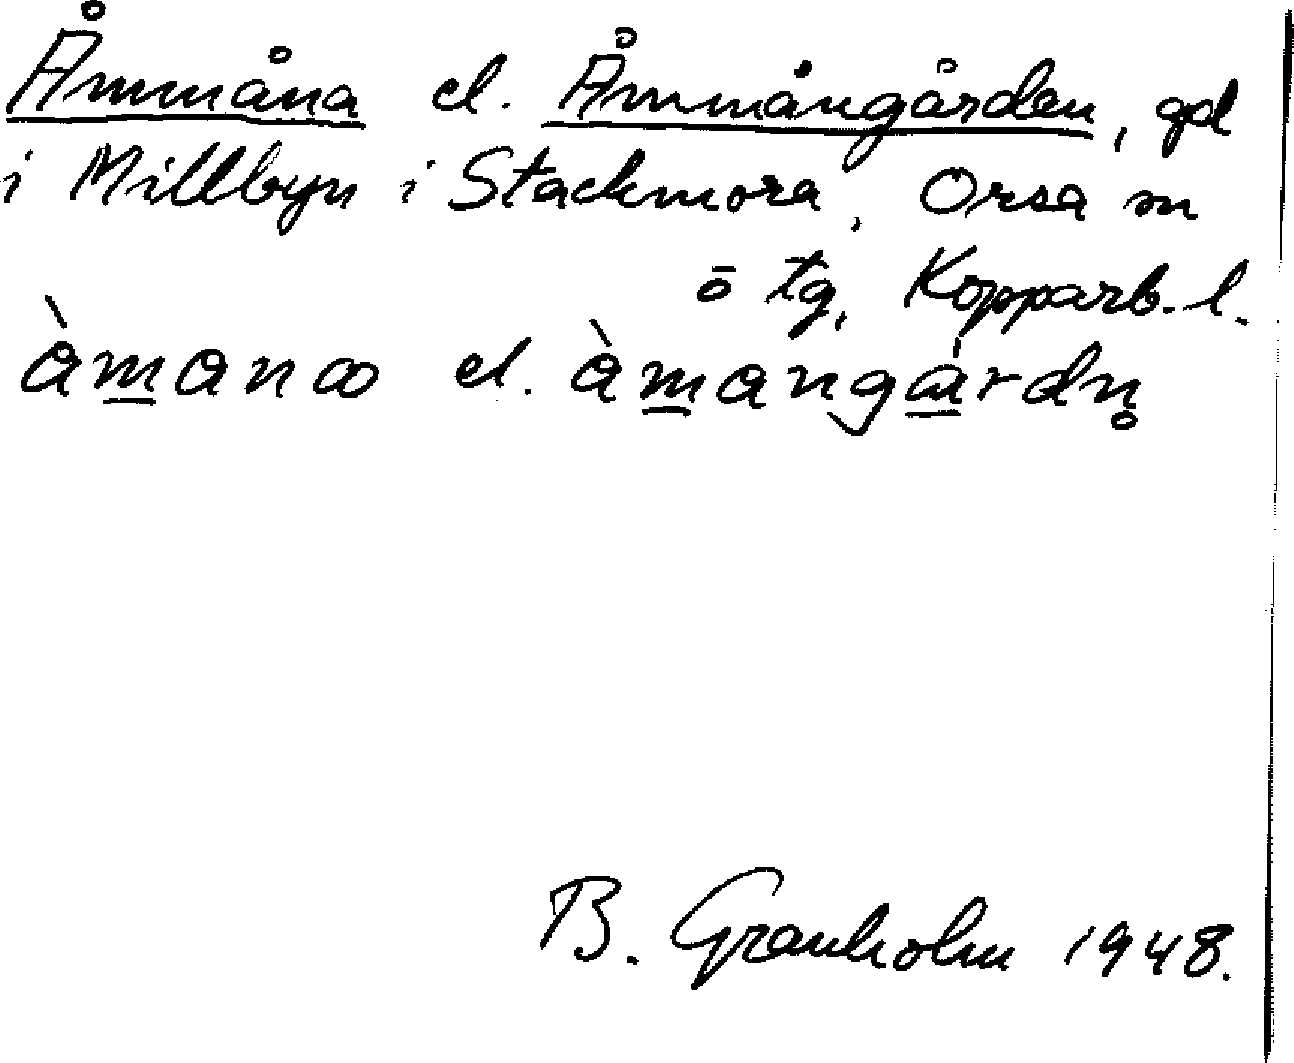 Åmmåna el. Åmmångården, gd
i Millbyn i Stackmora, Orsa sn
o tg, Kopparb. l.
àmana el. àmangárdn̥
B. Granholm 1948.